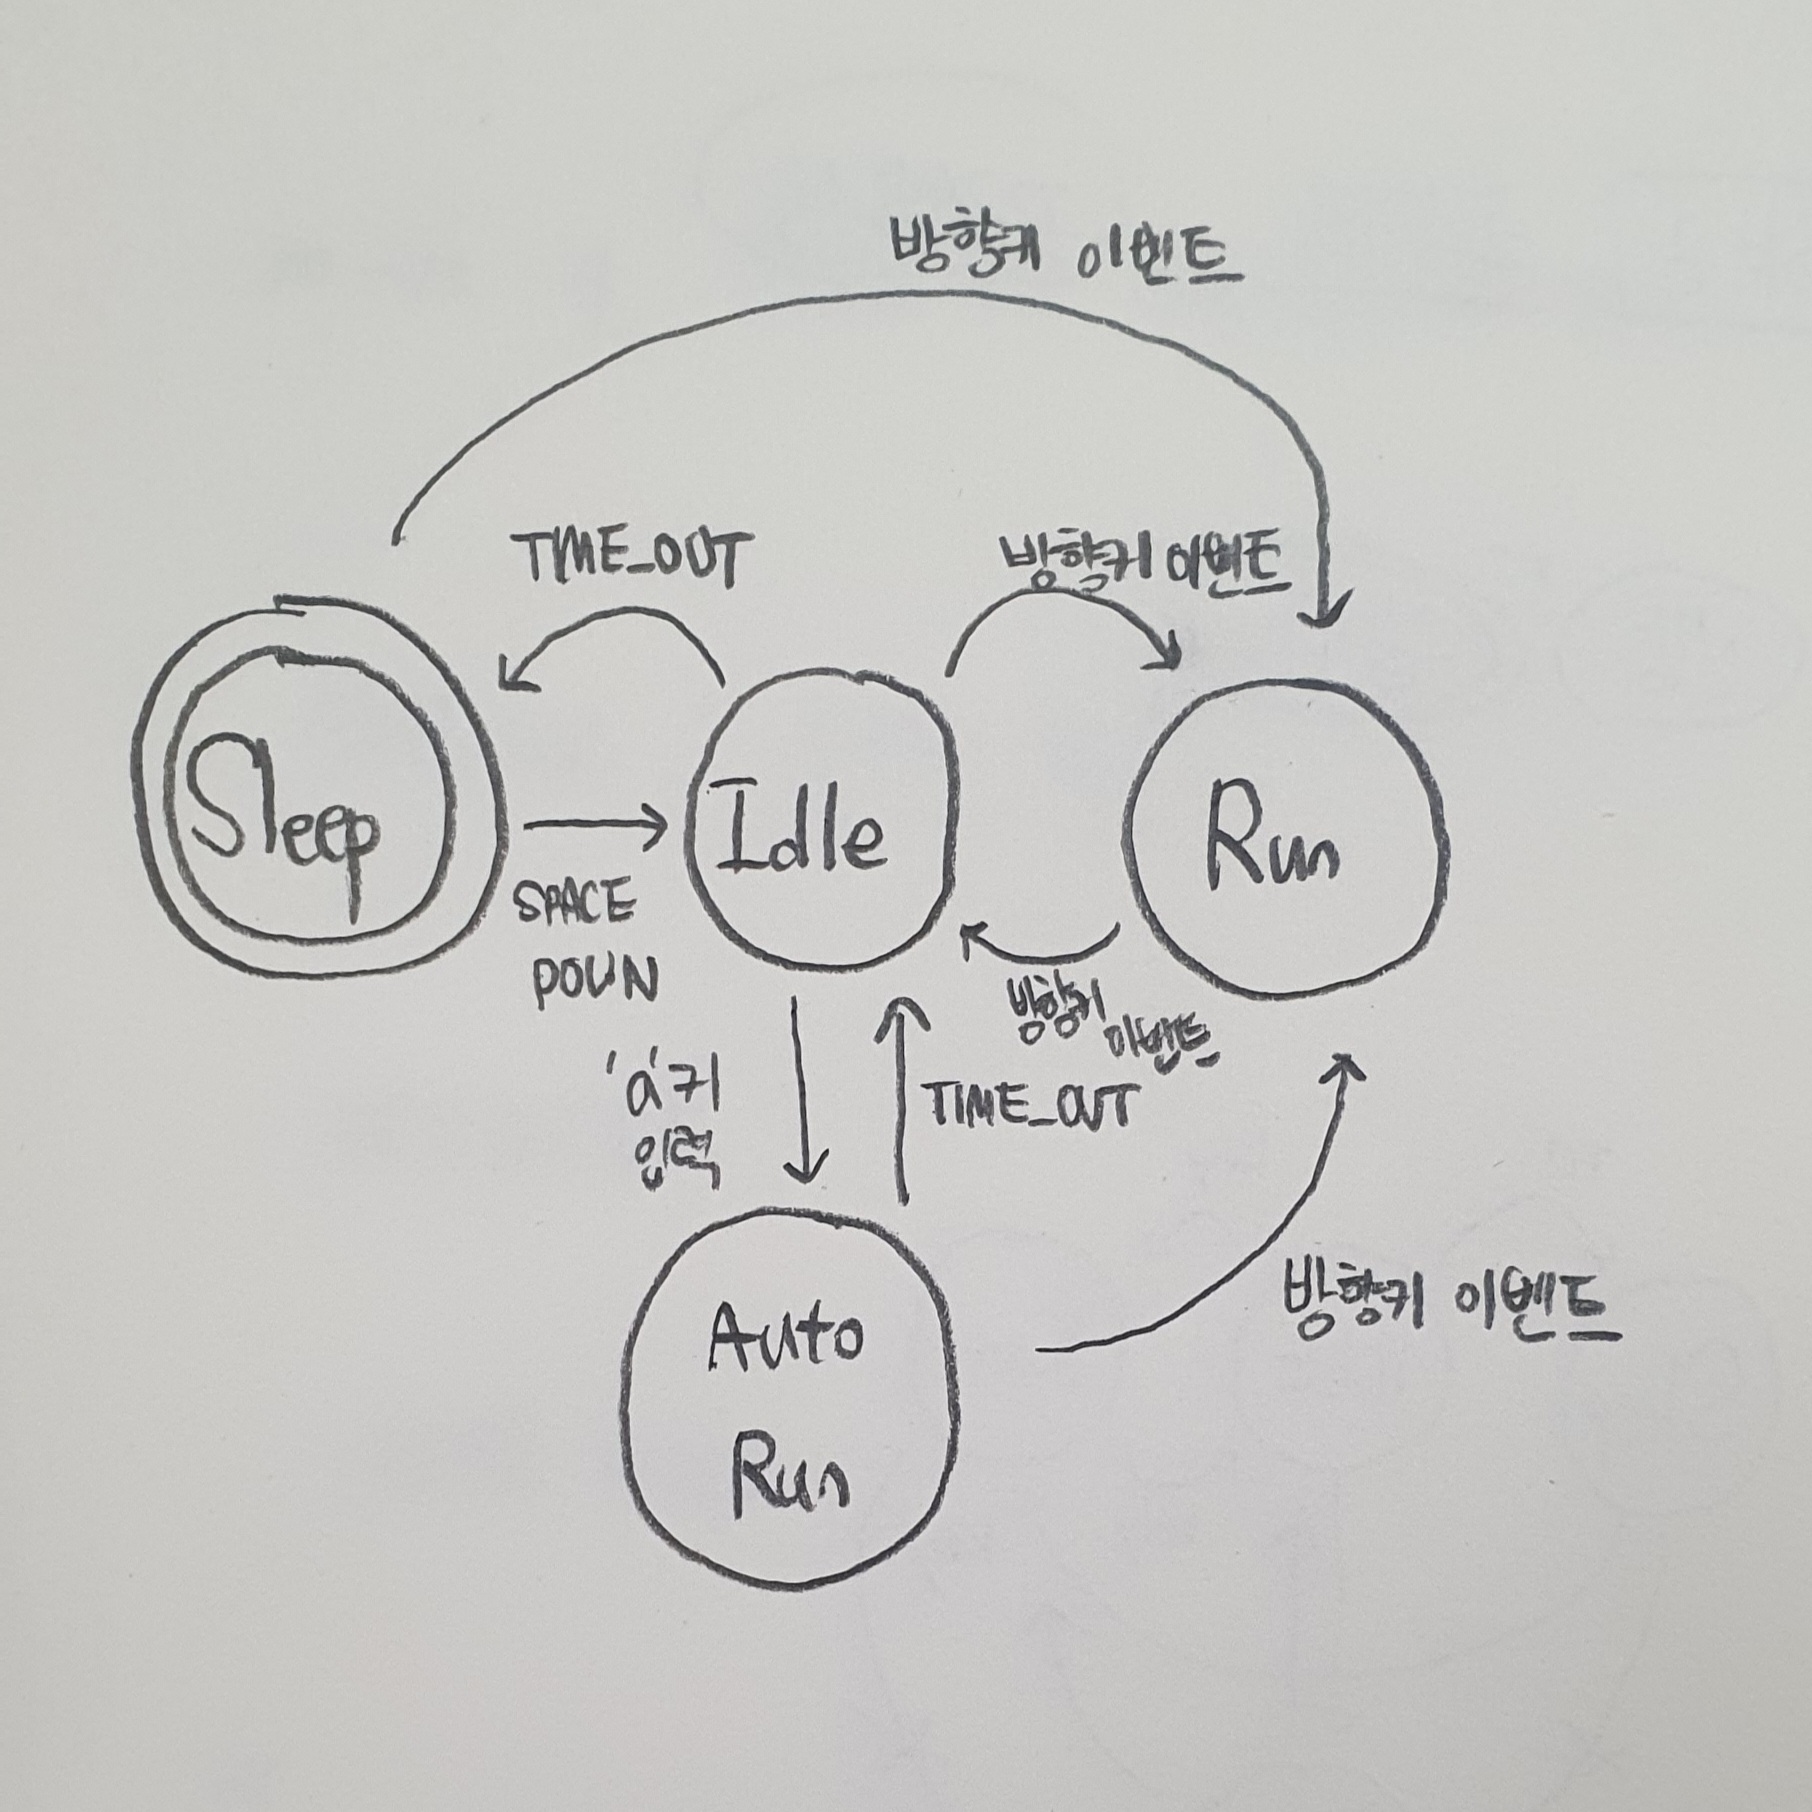 방향키 이벤트
TIME_OUT
방향키 이벤트
Sleep
Idle
Run
SPACE
DOWN
방향키
이벤트
'a'키
입력
TIME_OUT
Auto
Run
방향키 이벤트